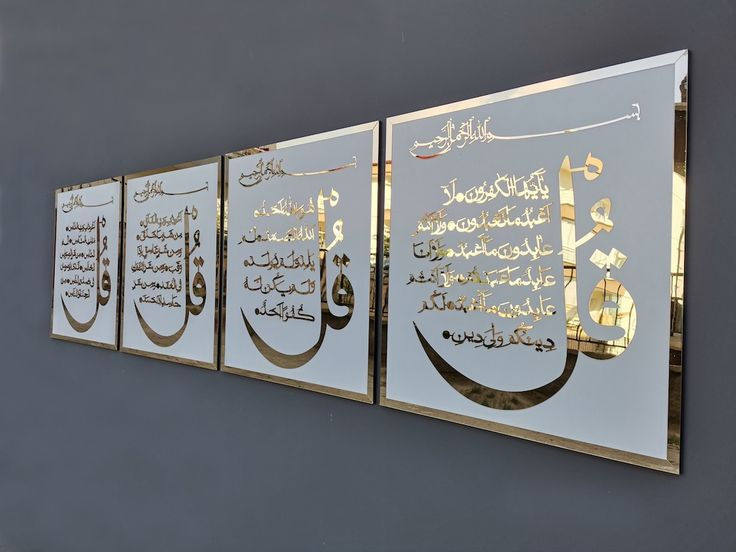 بسم الله الرحمن الرحيم
قُلْ
يَأَيُّهَا الْكَفِرُونَ لَا
أَعْبُدُ مَا تَعْبُدُونَ وَلَا أَنتُمْ
عَابِدُونَ مَا أَعْبُدُ وَلَا أَنَا
عَابِدٌ مَا عَبَدتُّمْ وَلَا أَنتُمْ
عَابِدُونَ مَا أَعْبُدُ لَكُمْ
دِينُكُمْ وَلِيَ دِينِ
بسم الله الرحمن الرحيم
قُلْ
هُوَ اللهُ أَحَدٌ
اللهُ الصَّمَدُ لَمْ
يَلِدْ وَلَمْ يُولَدْ
وَلَمْ يَكُن لَّهُ
كُفُوًا أَحَدٌ
بسم الله الرحمن الرحيم
قُلْ
أعوذ برب الفلق
من شر ما خلق
حاسد إذا حسد
بسم الله الرحمن الرحيم
قُلْ
أعوذ برب الناس